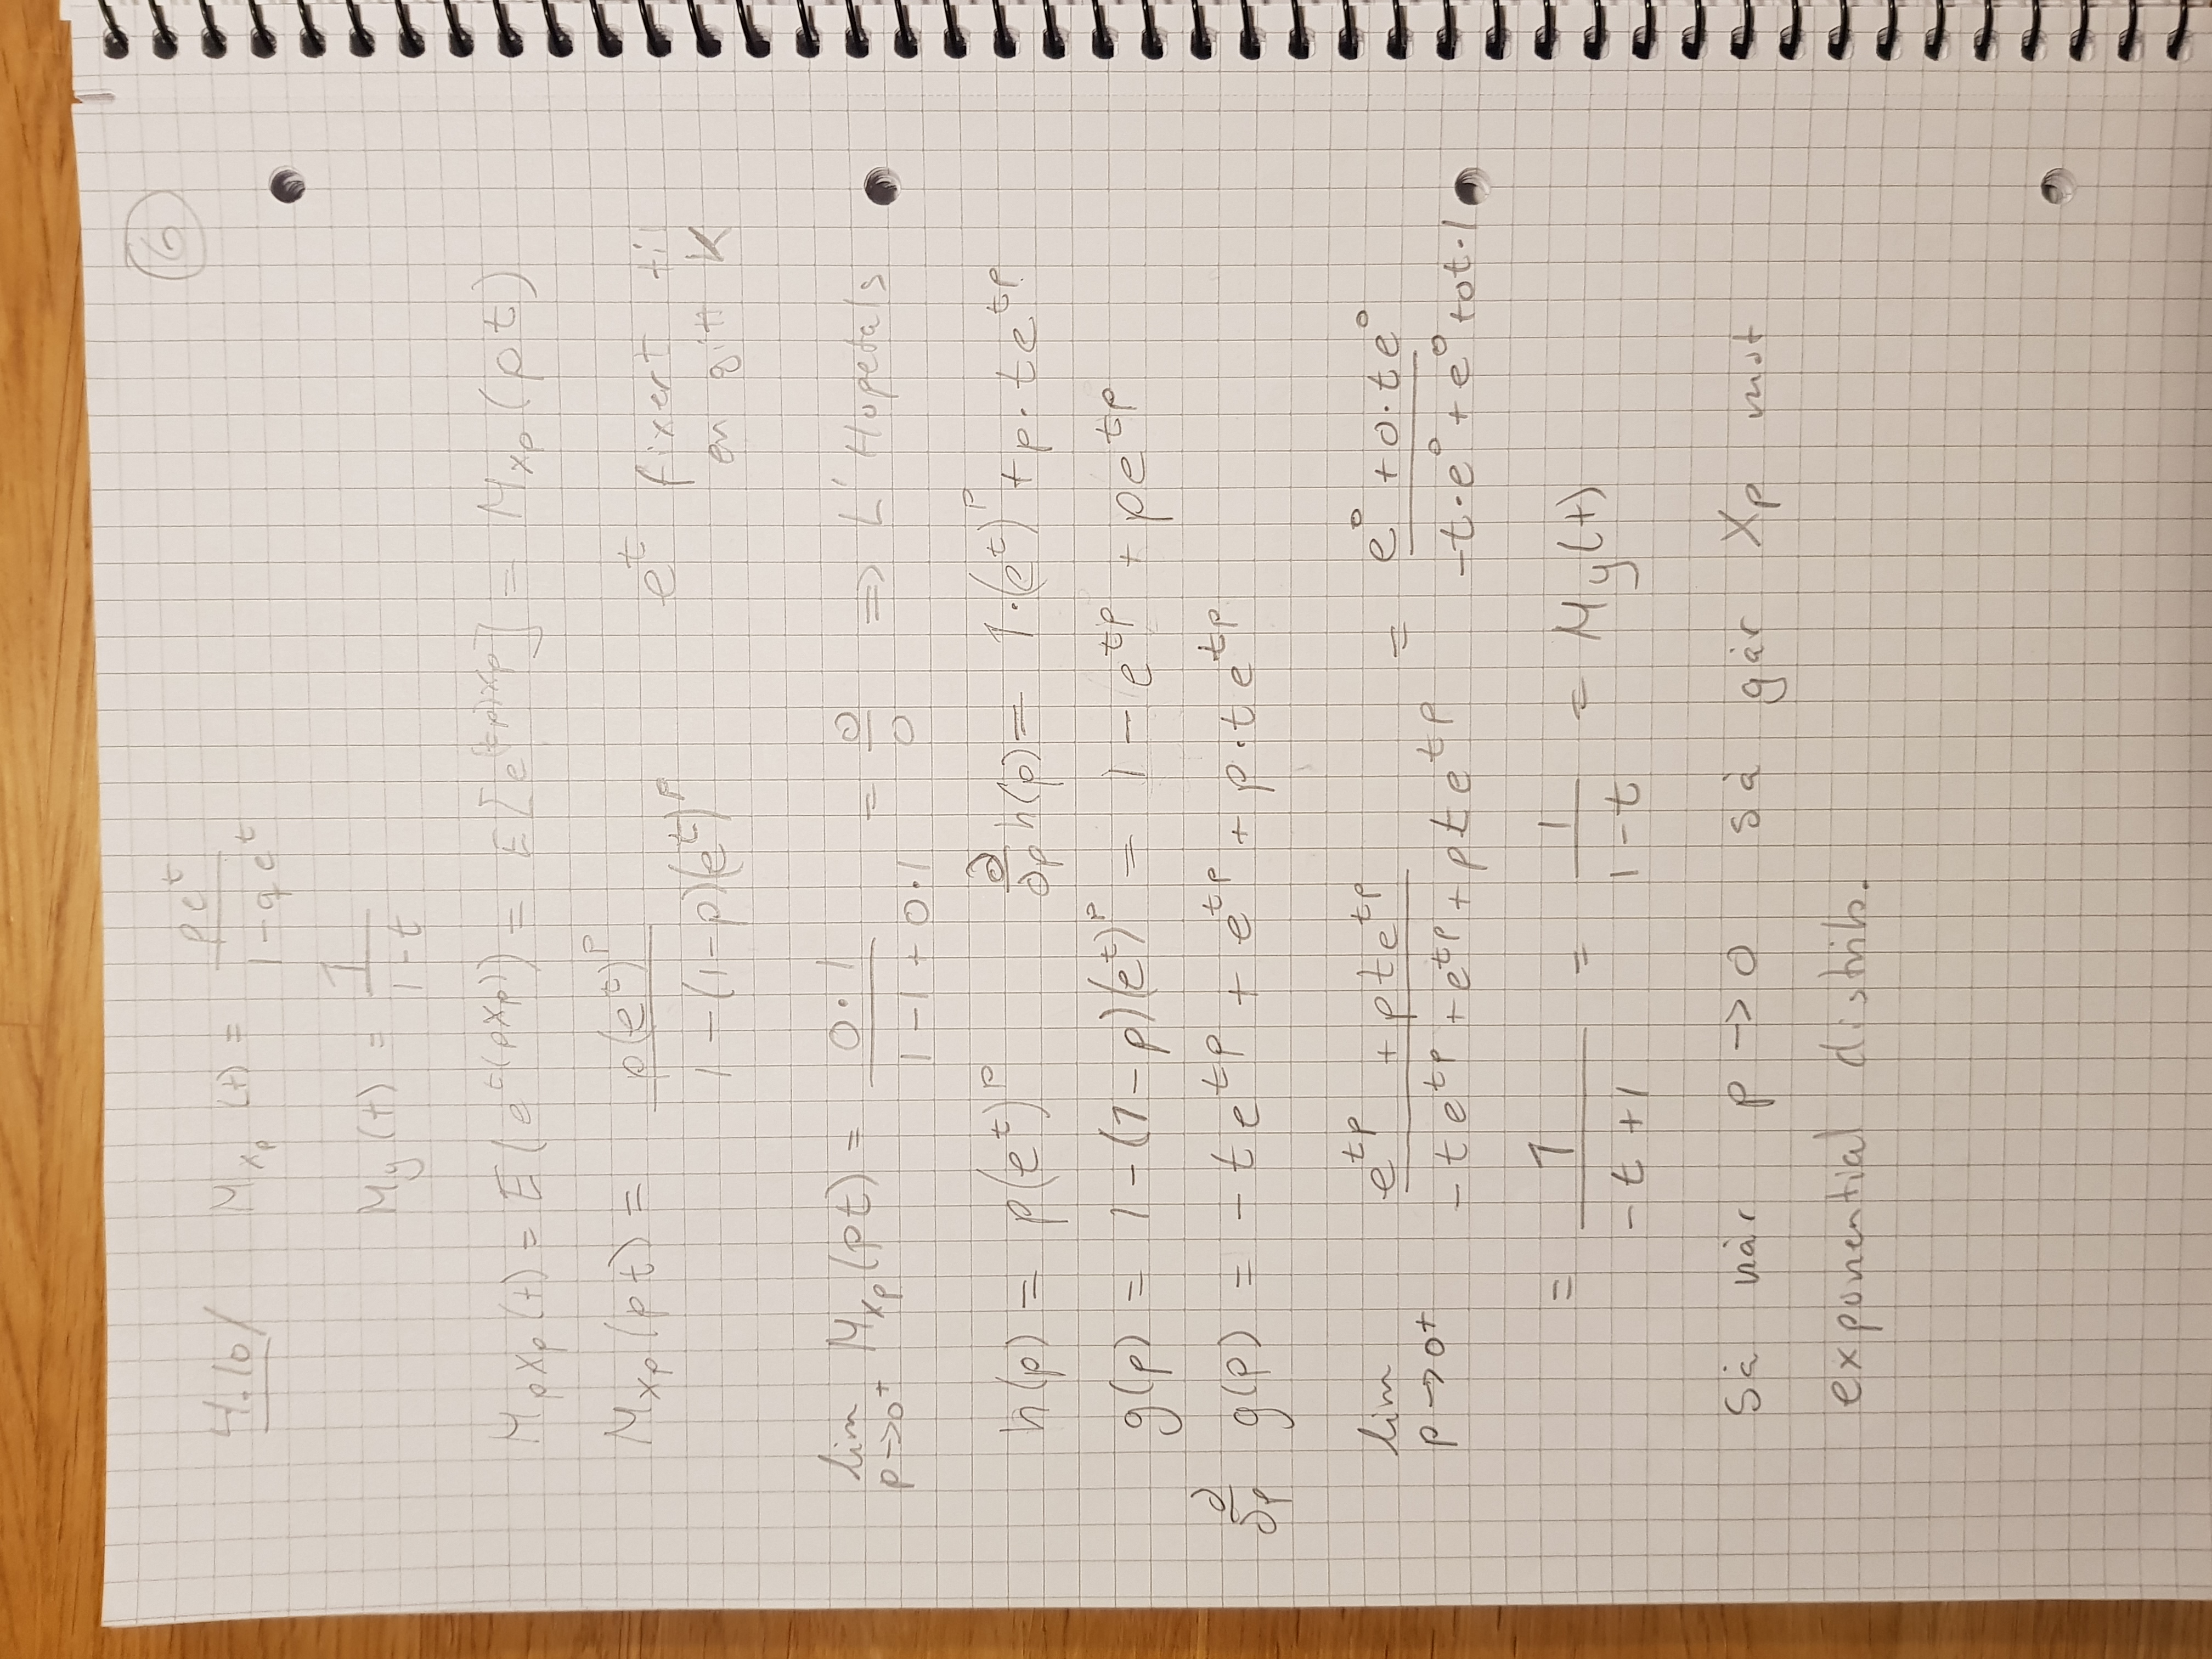 6
4.10/ M_{X_p}(t) = \frac{pe^t}{1-qe^t}
M_y(t) = \frac{1}{1-t}
M_{pX_p}(t) = E(e^{t(pX_p)}) = E[e^{(tp)X_p}] = M_{X_p}(pt)
M_{X_p}(pt) = \frac{p(e^t)^p}{1-(1-p)(e^t)^p} e^t fixert til
en gitt K
lim_{p→0^+} M_{X_p}(pt) = \frac{0·1}{1-1+0·1} = \frac{0}{0} ⇒ L'Hopetals
h(p) = p(e^t)^p \frac{∂}{∂p} h(p) = 1·(e^t)^p + p·te^{tp}
g(p) = 1-(1-p)(e^t)^p = 1-e^{tp} + pe^{tp}
\frac{∂}{∂p} g(p) = -te^{tp} + e^{tp} + p·te^{tp}
lim_{p→0^+} \frac{e^{tp} + pte^{tp}}{-te^{tp} + e^{tp} + pte^{tp}} = \frac{e^0 + 0·te^0}{-t·e^0 + e^0 + 0t·1}
= \frac{1}{-t+1} = \frac{1}{1-t} = M_y(t)
Så når p → 0 så går X_p mot
exponential distrib.